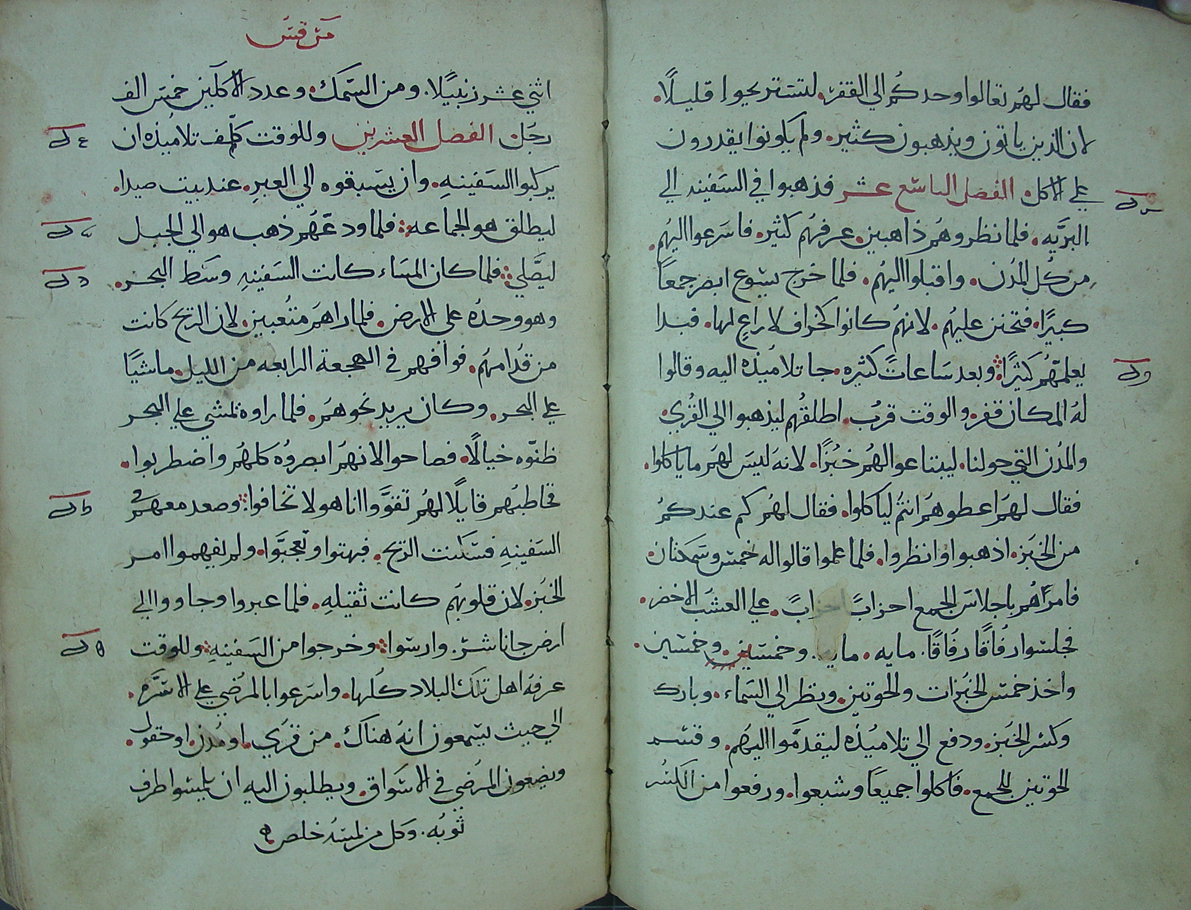 فقال لهم تعالوا وحدكم الي القفر. لتستريحوا قليلًا.
لان الذين ياتون ويذهبون كثير. ولم يكونوا يقدرون
علي الاكل. الفصل التاسع عشر فذهبوا في السفينه الي
البريه. فلما نظروهم ذاهبين. عرفهم كثير. فاسرعوا اليهم.
من كل المدن. واقبلوا اليهم. فلما خرج يسوع ابصر جمعًا
كبيرًا. فتحنن عليهم. لانهم كانوا كخراف لا راعٍ لها. فبدا
يعلمهم كثيرًا. وبعد ساعات كثيره. جا تلاميذه اليه وقالوا
له المكان قفر. والوقت قرب. اطلقهم ليذهبوا الي القري.
والمدن التي حولنا. ليبتاعوا لهم خبزًا. لانه ليس لهم ما ياكلوا.
فقال لهم اعطوهم انتم لياكلوا. فقال لهم كم عندكم
من الخبز. اذهبوا وانظروا. فلما علموا قالوا له خمس وسمكتان.
فامراهم باجلاس الجمع احزابًا احزابً. علي العشب الاخضر.
فجلسوا رفاقًا رفاقًا. مايه. مايه. وخمسين وخمسين.
واخذ خمس الخبزات والحوتين. ونظر الي السماء. وبارك
وكسر الخبز. ودفع الي تلاميذه ليقدموا اليهم. وقسم
الحوتين للجمع. فاكلوا جميعًا وشبعوا. ورفعوا من الكسر
مرقس
اثني عشر زنبيلًا. ومن السمك. وعدد الاكلين خمس الف
رجل. الفصل العشرين وللوقت كلف تلاميذه ان
يركبوا السفينه. وان يسبقوه الي العبر. عند بيت صيدا.
ليطلق هو الجماعه. فلما ودعهم ذهب هو الي الجبل
ليصلي. فلما كان المساء كانت السفينه وسط البحر.
وهو وحده علي الارض. فلما راهم متعبين. لان الريح كانت
من قدامهم. فوافهم في الهجعة الرابعه من الليل. ماشيًا
علي البحر. وكان يريد نحوهم. فلما راوه يمشي علي البحر
ظنوه خيالًا. فصاحوا لانهم ابصروه كلهم واضطربوا.
فخاطبهم قايلًا لهم تقووا انا هو لا تخافوا. وصعد معهم في
السفينه فسكنت الريح. فبهتوا وتعجبوا. ولم يفهموا امر
الخبز. لان قلوبهم كانت ثقيله. فلما عبروا وجاووا الي
ارض جاناشر. وارسوا. وخرجوا من السفينه. وللوقت
عرفه اهل تلك البلاد كلها. واسرعوا بالمرضي علي الاسره.
الي حيث يسمعون انه هناك. من قري. او مدن. او حقول.
ويضعون المرضي في الاسواق. ويطلبون اليه ان يلمسوا طرف
ثوبه. وكل من لمسه خلص.